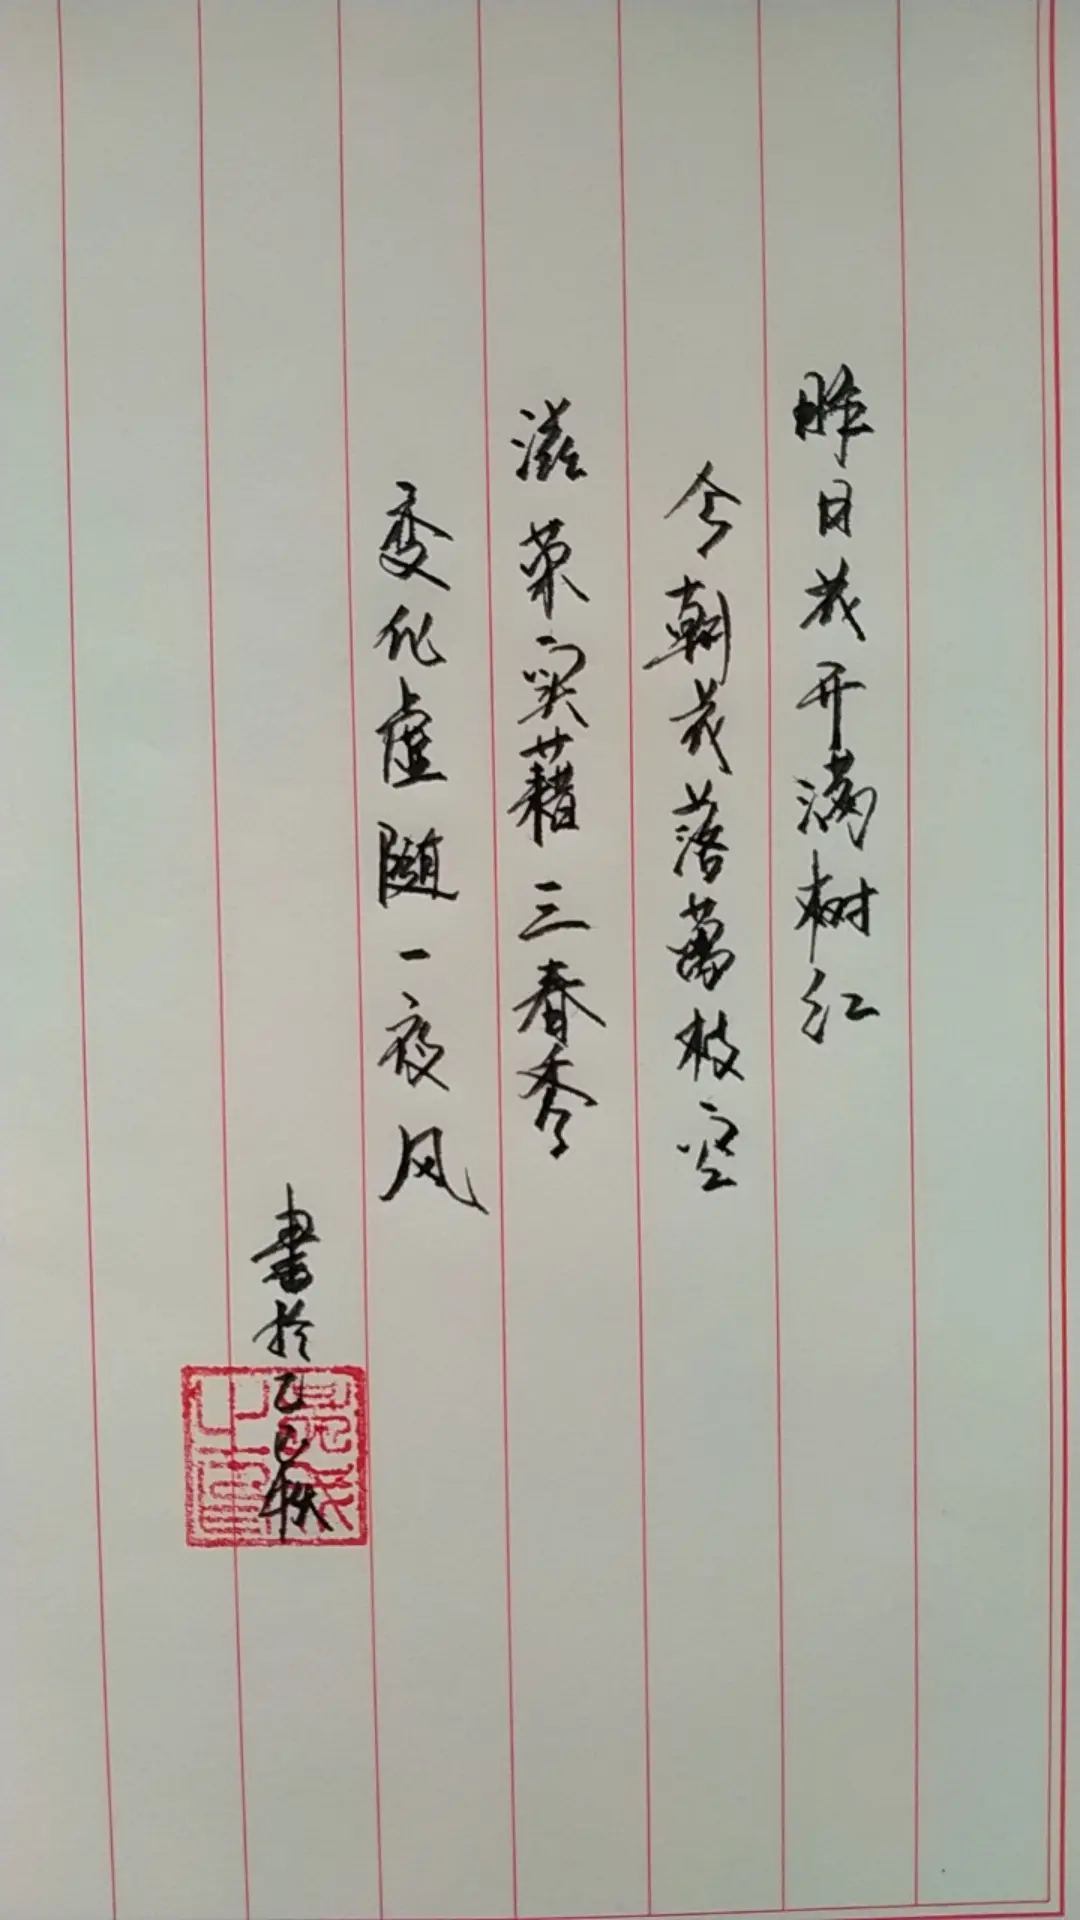 昨日花开满树红
今朝花落萬枝空
滋荣实藉三春季
变化虚随一夜风
書於乙巳秋